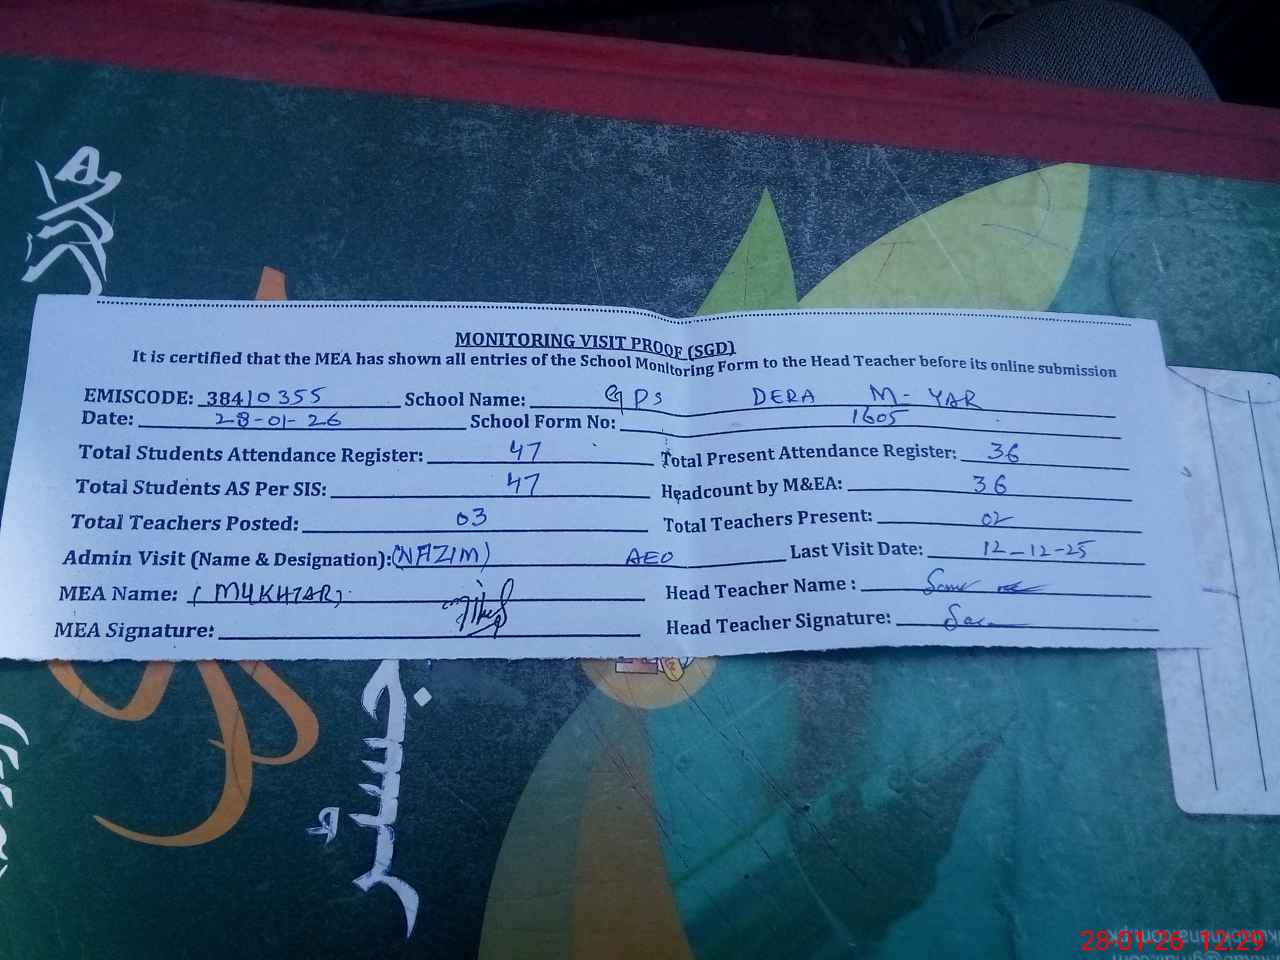 MONITORING VISIT PROOF (SGD)
It is certified that the MEA has shown all entries of the School Monitoring Form to the Head Teacher before its online submission
EMISCODE: 38410355 School Name: GPS DERA M-YAR
Date: 28-01-26 School Form No: 1605
Total Students Attendance Register: 47 Total Present Attendance Register: 36
Total Students AS Per SIS: 47 Headcount by M&EA: 36
Total Teachers Posted: 03 Total Teachers Present: 02
Admin Visit (Name & Designation): (NAZIM) AEO Last Visit Date: 12-12-25
MEA Name: (MUKHTAR) Head Teacher Name :
MEA Signature: Head Teacher Signature:
رجسٹر
28-01-26 12:29